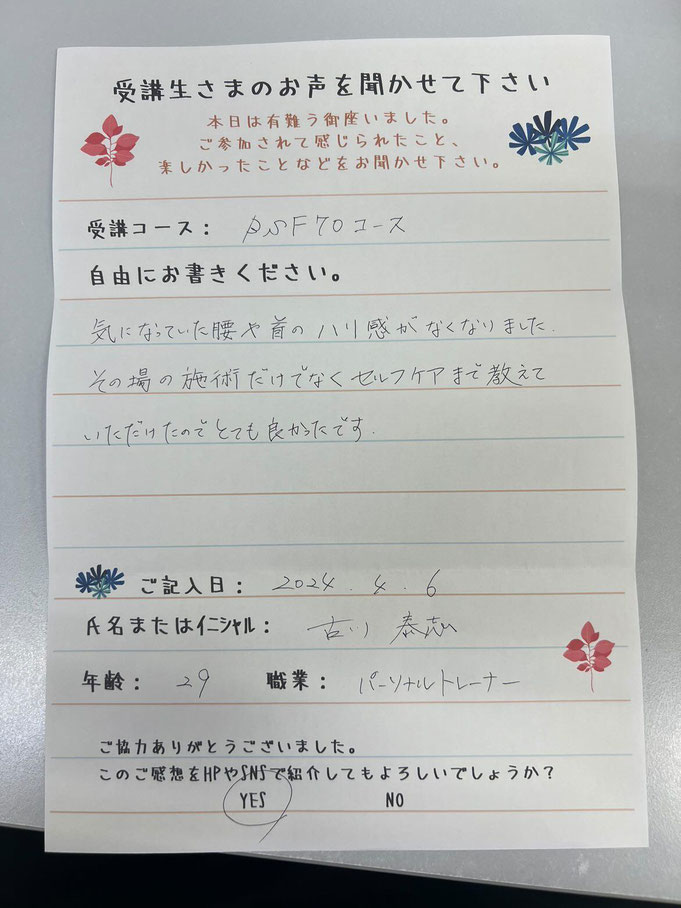 受講生さまのお声を聞かせて下さい
本日は有難う御座いました。
ご参加されて感じられたこと、
楽しかったことなどをお聞かせ下さい。
受講コース： PSF70コース
自由にお書きください。
気になっていた腰や首のハリ感がなくなりました.
その場の施術だけでなくセルフケアまで教えて
いただけたのでとても良かったです.
ご記入日： 2024.4.6
氏名またはイニシャル： 古川 泰志
年齢： 29 職業： パーソナルトレーナー
ご協力ありがとうございました。
このご感想をHPやSNSで紹介してもよろしいでしょうか？
YES NO